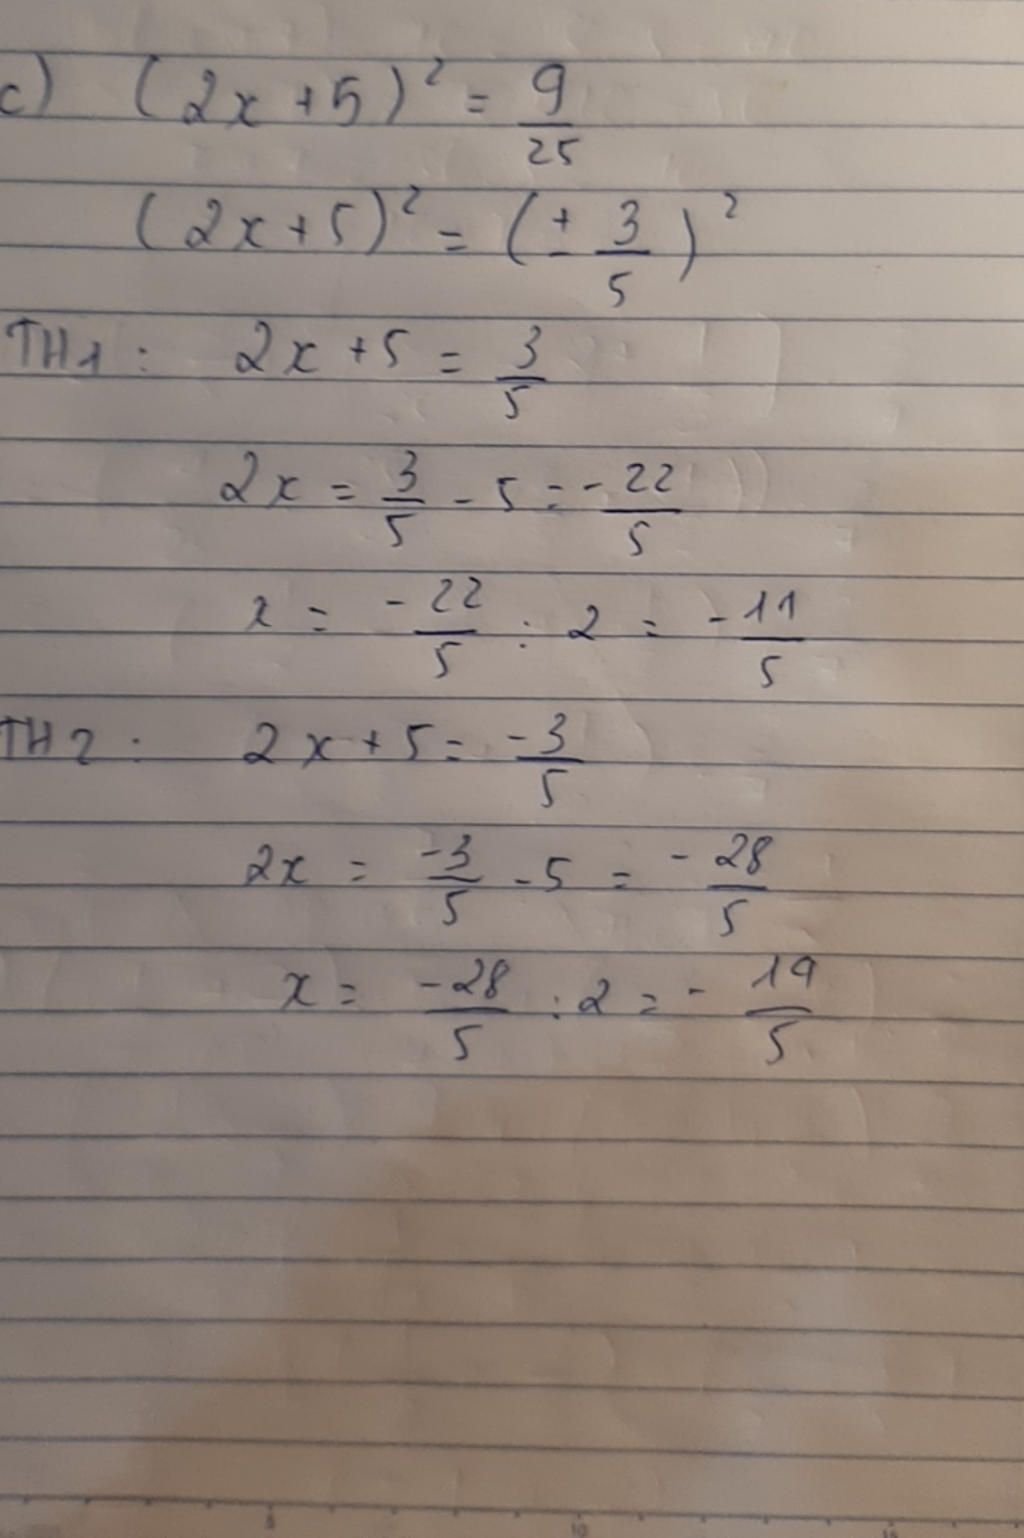 c) (2x + 5)² = 9/25
(2x + 5)² = (± 3/5)²
TH1 : 2x + 5 = 3/5
2x = 3/5 - 5 = - 22/5
x = - 22/5 : 2 = - 11/5
TH2 : 2x + 5 = - 3/5
2x = - 3/5 - 5 = - 28/5
x = - 28/5 : 2 = - 19/5
5 10 15